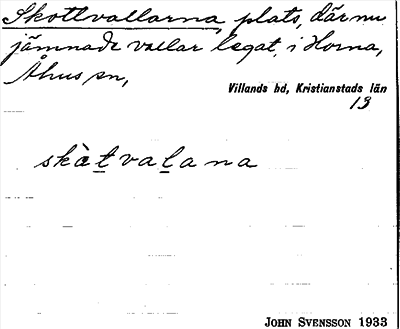 Skottvallarna, plats, där nu
jämnade vallar legat, i Horna,
Åhus sn,
Villands hd, Kristianstads län
13
skàtvalana
JOHN SVENSSON 1933